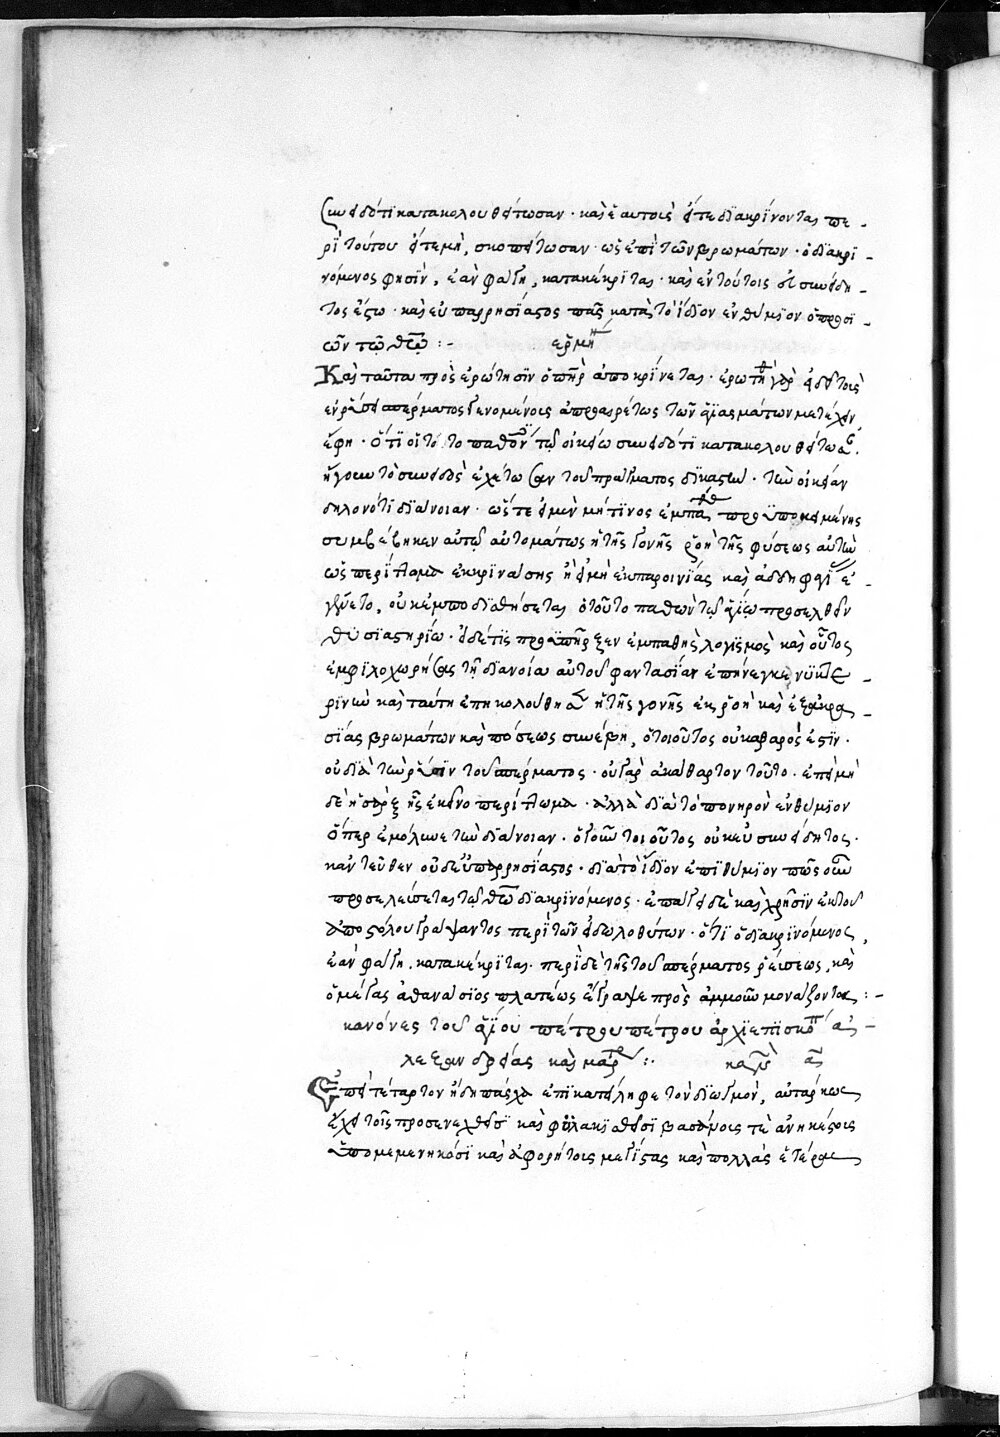 συνειδότι κατακολουθείτωσαν· καὶ ἑαυτοὺς εἴτε διακρίνονται πε-
ρὶ τούτου εἴτε μὴ, σκοπείτωσαν· ὡς ἐπὶ τῶν βρωμάτων· ὁ διακρι-
νόμενος φησὶν, ἐὰν φάγῃ, κατακέκριται· καὶ ἐν τούτοις εὐσυνείδη-
τος ἔστω· καὶ εὐπαρρησίαστος πᾶς κατὰ τὸ ἴδιον ἐνθύμιον ὁ προσι-
ὼν τῷ θεῷ :- ἑρμη
Καὶ ταῦτα πρὸς ἐρώτησιν ὁ πὴρ ἀποκρίνεται· ἐρωτηθεὶς γὰρ εἰ δεῖ τοὺς
ἐν ῥεύσει σπέρματος γενομένοις ἀπροαιρέτως τῶν ἁγιασμάτων μετέχειν
ἔφη· ὅτι οἱ τοῦτο παθόντες τῷ οἰκείῳ συνειδότι κατακολουθείτωσαν·
ἤγουν τὸ συνειδὸς ἐχέτωσαν τοῦ πράγματος δικαστὴν· τὴν οἰκείαν
δηλονότι διάνοιαν· ὥστε εἰ μὲν μή τινος ἐμπαθείας προϋποκειμένης
συμβέβηκεν αὐτῷ αὐτομάτως ἡ τῆς γονῆς ῥοὴ τῆς φύσεως αὐτὴν
ὡς περίττωμα ἐκκρινάσης ἢ εἰ μὴ ἐκ παροινίας καὶ ἀδδηφαγίας ἐ-
γένετο, οὐκ ἐμποδισθήσεται ὁ τοῦτο παθὼν τῷ ἁγίῳ προσελθεῖν
θυσιαστηρίῳ· εἰ δέ τις προϋπῆρξεν ἐμπαθὴς λογισμὸς καὶ οὗτος
ἐμφιλοχωρήσας τῇ διανοίᾳ αὐτοῦ φαντασίαν ἐπήνεγκε νυκτε-
ρινὴν καὶ ταύτῃ ἐπηκολούθησεν ἡ τῆς γονῆς ἐκροὴ καὶ ἐξ ἀκρα-
σίας βρωμάτων καὶ πόσεως συνέβη, ὁ τοιοῦτος οὐ καθαρός ἐστιν·
οὐ διὰ τὴν ῥεῦσιν τοῦ σπέρματος· οὐ γὰρ ἀκάθαρτον τοῦτο· ἐπεὶ μὴ
δὲ ἡ σὰρξ ἧς ἐκεῖνο περίττωμα· ἀλλὰ διὰ τὸ πονηρὸν ἐνθύμιον
ὅπερ ἐμόλυνε τὴν διάνοιαν· ὁ γοῦν τοιοῦτος οὐκ εὐσυνείδητος·
κἀντεῦθεν οὐδ' εὐπαρρησίαστος· διὰ τὸ ἴδιον ἐπιθύμιον πῶς οὖν
προσελεύσεται τῷ θεῷ διακρινόμενος· ἐπάγει δὲ καὶ χρῆσιν ἐκ τοῦ
ἀποστόλου γράψαντος περὶ τῶν εἰδωλοθύτων· ὅτι ὁ διακρινόμενος,
ἐὰν φάγῃ, κατακέκριται· περὶ δὲ τῆς τοῦ σπέρματος ῥεύσεως, καὶ
ὁ μέγας ἀθανάσιος πλατέως ἔγραψε πρὸς ἀμμοῦν μονάζοντα :-
κανόνες τοῦ ἁγίου πέτρου πέτρου ἀρχιεπισκόπ ἀ-
λεξανδρείας καὶ μάρ :· κανὼν αος
Ἐπεὶ τέταρτον ἤδη πάσχα ἐπικατείληφε τὸν διωγμὸν, αὐτάρκως
ἔχει τοῖς προσενεχθεῖσι καὶ φυλακισθεῖσι βασάνους τὲ ἀνηκέστους
ὑπομεμενηκόσι καὶ ἀφορήτους μάστιγας καὶ πολλὰς ἑτέρας